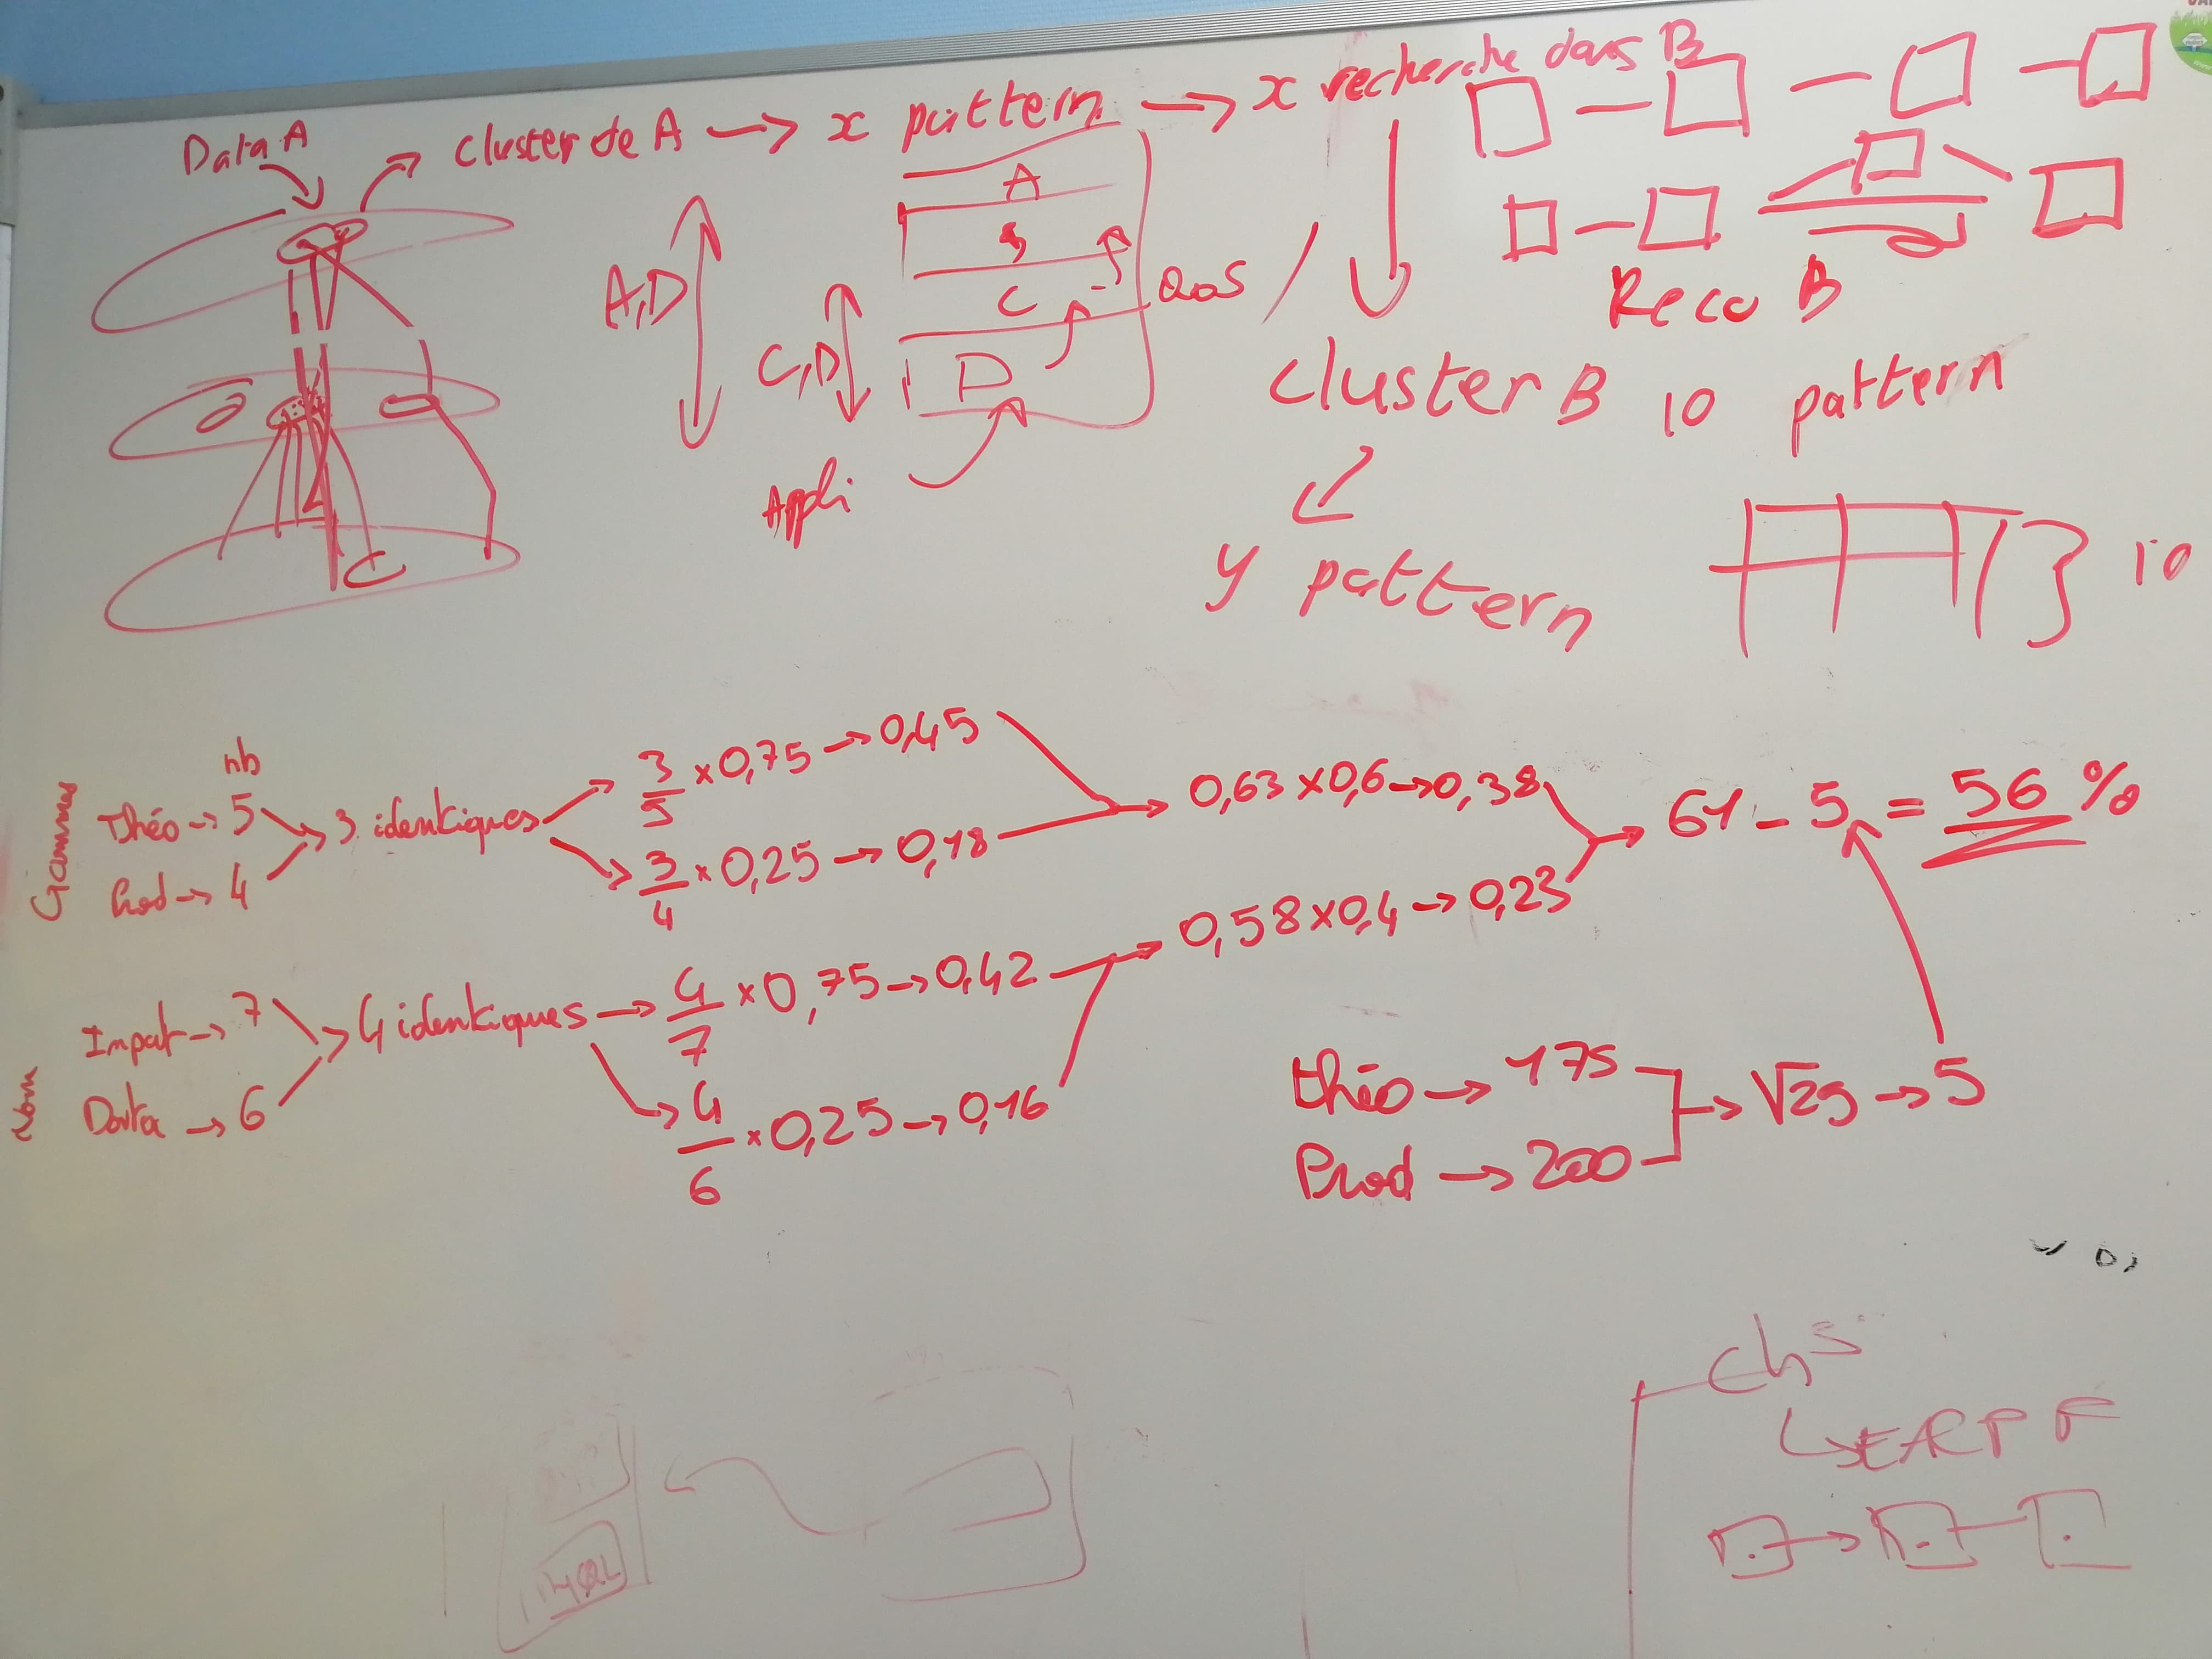 Data A
Cluster de A → x pattern → x recherche dans B
A
C
D
A,D
C,D
QoS
Appli
Reco B
Cluster B 10 pattern
y pattern
10
Gammes
nb
théo → 5
Prod → 4
3 identiques
3/5 × 0,75 → 0,45
3/4 × 0,25 → 0,18
0,63 × 0,6 → 0,38
61 - 5 = 56 %
Nom
Input → 7
Data → 6
4 identiques → 4/7 × 0,75 → 0,42
4/6 × 0,25 → 0,16
0,58 × 0,4 → 0,23
théo → 175
Prod → 200
√25 → 5